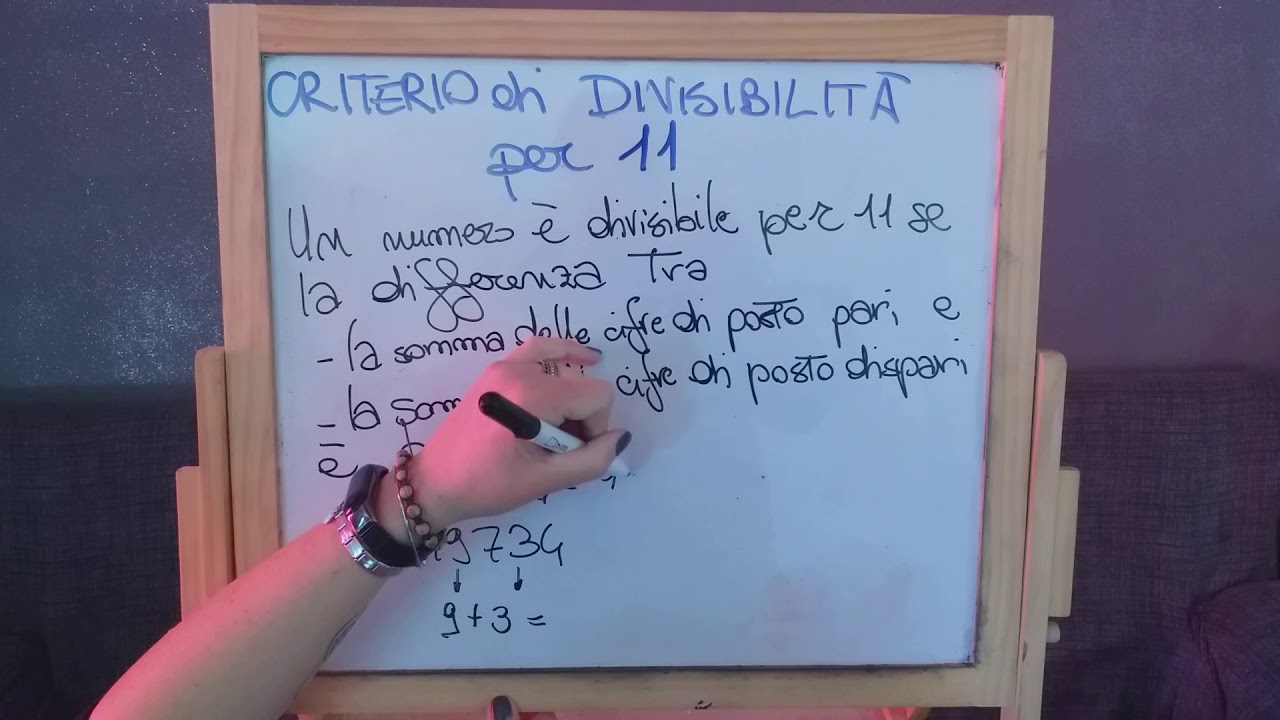 CRITERIO di DIVISIBILITÀ
per 11
Un numero è divisibile per 11 se
la differenza Tra
- la somma delle cifre di posto pari, e
- la cifre di posto dispari
è
9734
9 + 3 =